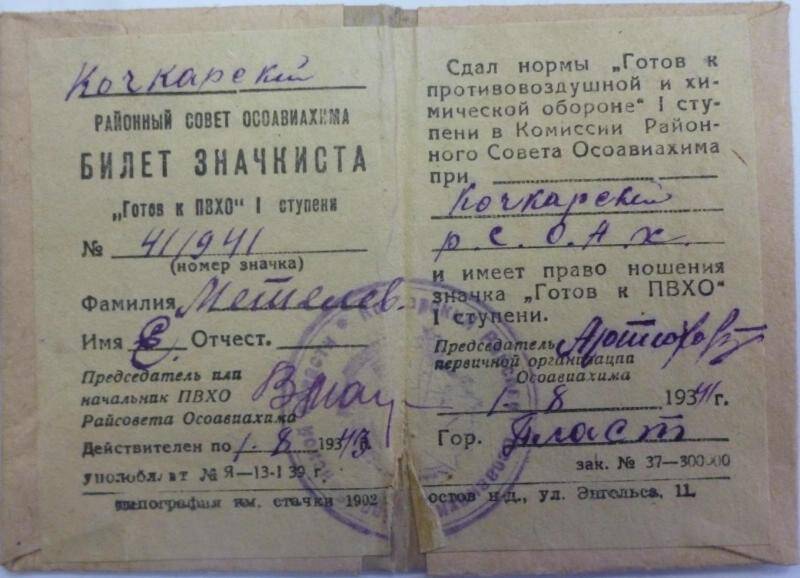 Кочкарский
РАЙОННЫЙ СОВЕТ ОСОАВИАХИМА
БИЛЕТ ЗНАЧКИСТА
„Готов к ПВХО" I ступени
№ 411941
(номер значка)
Фамилия Метелев
Имя Е. Отчест.
Председатель или
начальник ПВХО
Райсовета Осоавиахима
Действителен по 1-8 1943
№ Я—13-1 39 г.
типография им. стачки 1902
Сдал нормы „Готов к
противовоздушной и хи-
мической обороне" I сту-
пени в Комиссии Район-
ного Совета Осоавиахима
при
Кочкарский
р.С.О.А.Х.
и имеет право ношения
значка „Готов к ПВХО"
I ступени.
Председатель
первичной организации
Осоавиахима
1-8 1941 г.
Гор. Пласт
зак. № 37—300000
остов н-д., ул. Энгельса, 11.